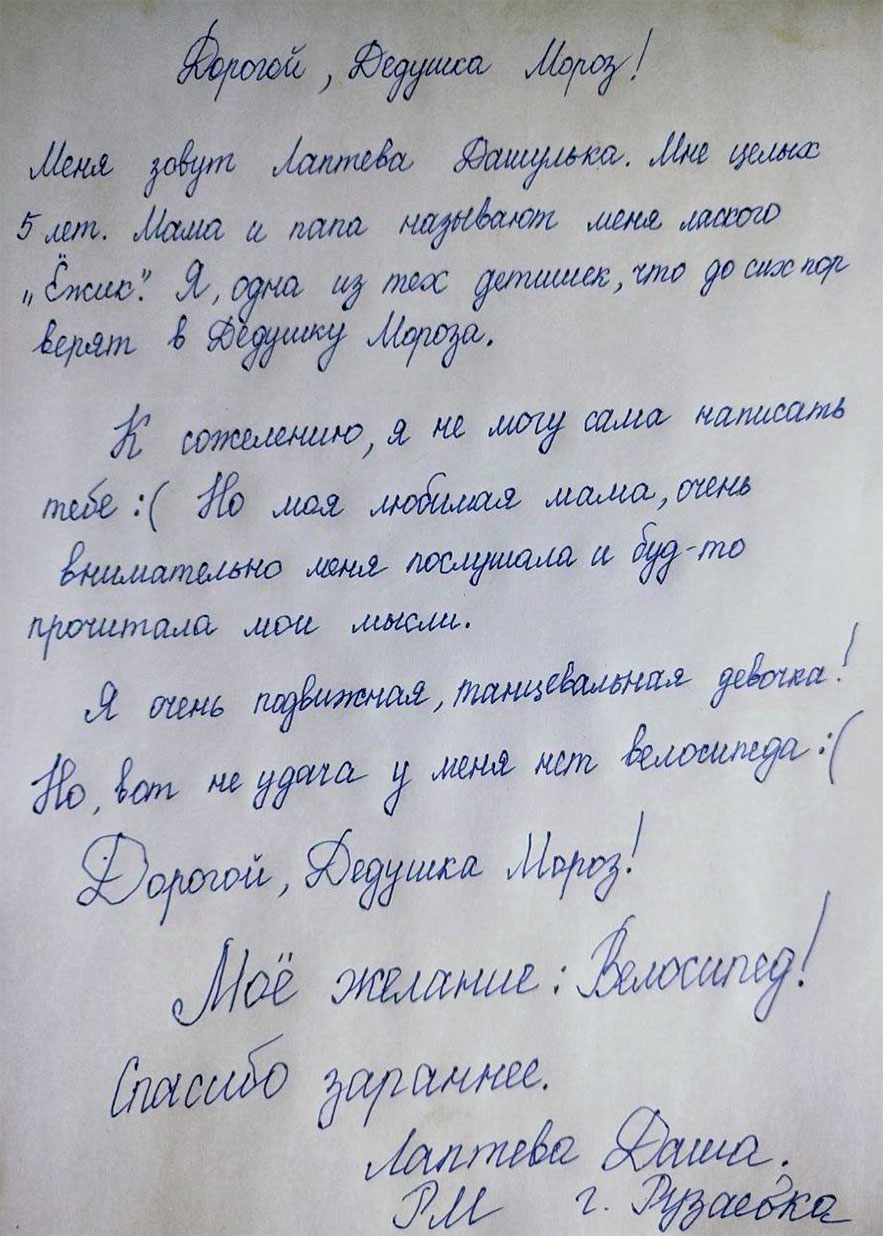 Дорогой, Дедушка Мороз!
Меня зовут Лаптева Дашулька. Мне целых
5 лет. Мама и папа называют меня лаского
„Ёжик". Я, одна из тех детишек, что до сих пор
верят в Дедушку Мороза.
К сожелению, я не могу сама написать
тебе :( Но моя любимая мама, очень
внимательно меня послушала и буд-то
прочитала мои мысли.
Я очень подвижная, танцевальная девочка!
Но, вот не удача у меня нет велосипеда :(
Дорогой, Дедушка Мороз!
Моё желание: Велосипед!
Спасибо зараннее.
Лаптева Даша.
РМ г. Рузаевка